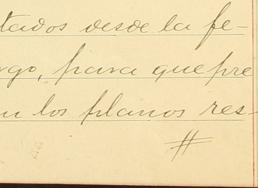 tados desde la fe-
rgo, para que pre
n los planos res-